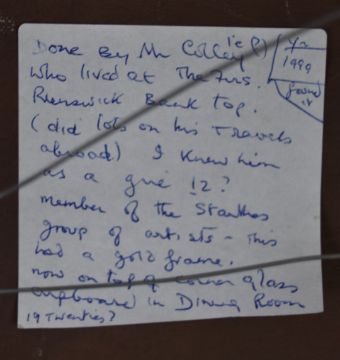 Done By Mr Colley ie(?)
Who lived at The Firs.
Runswick Bank top.
(did lots on his Travels
abroad) I knew him
as a 12?
member of the Staithes
group of artists - This
had a gold frame.
now on top of corner glass
cupboard in Dining Room
19 Twenties?
1999
found